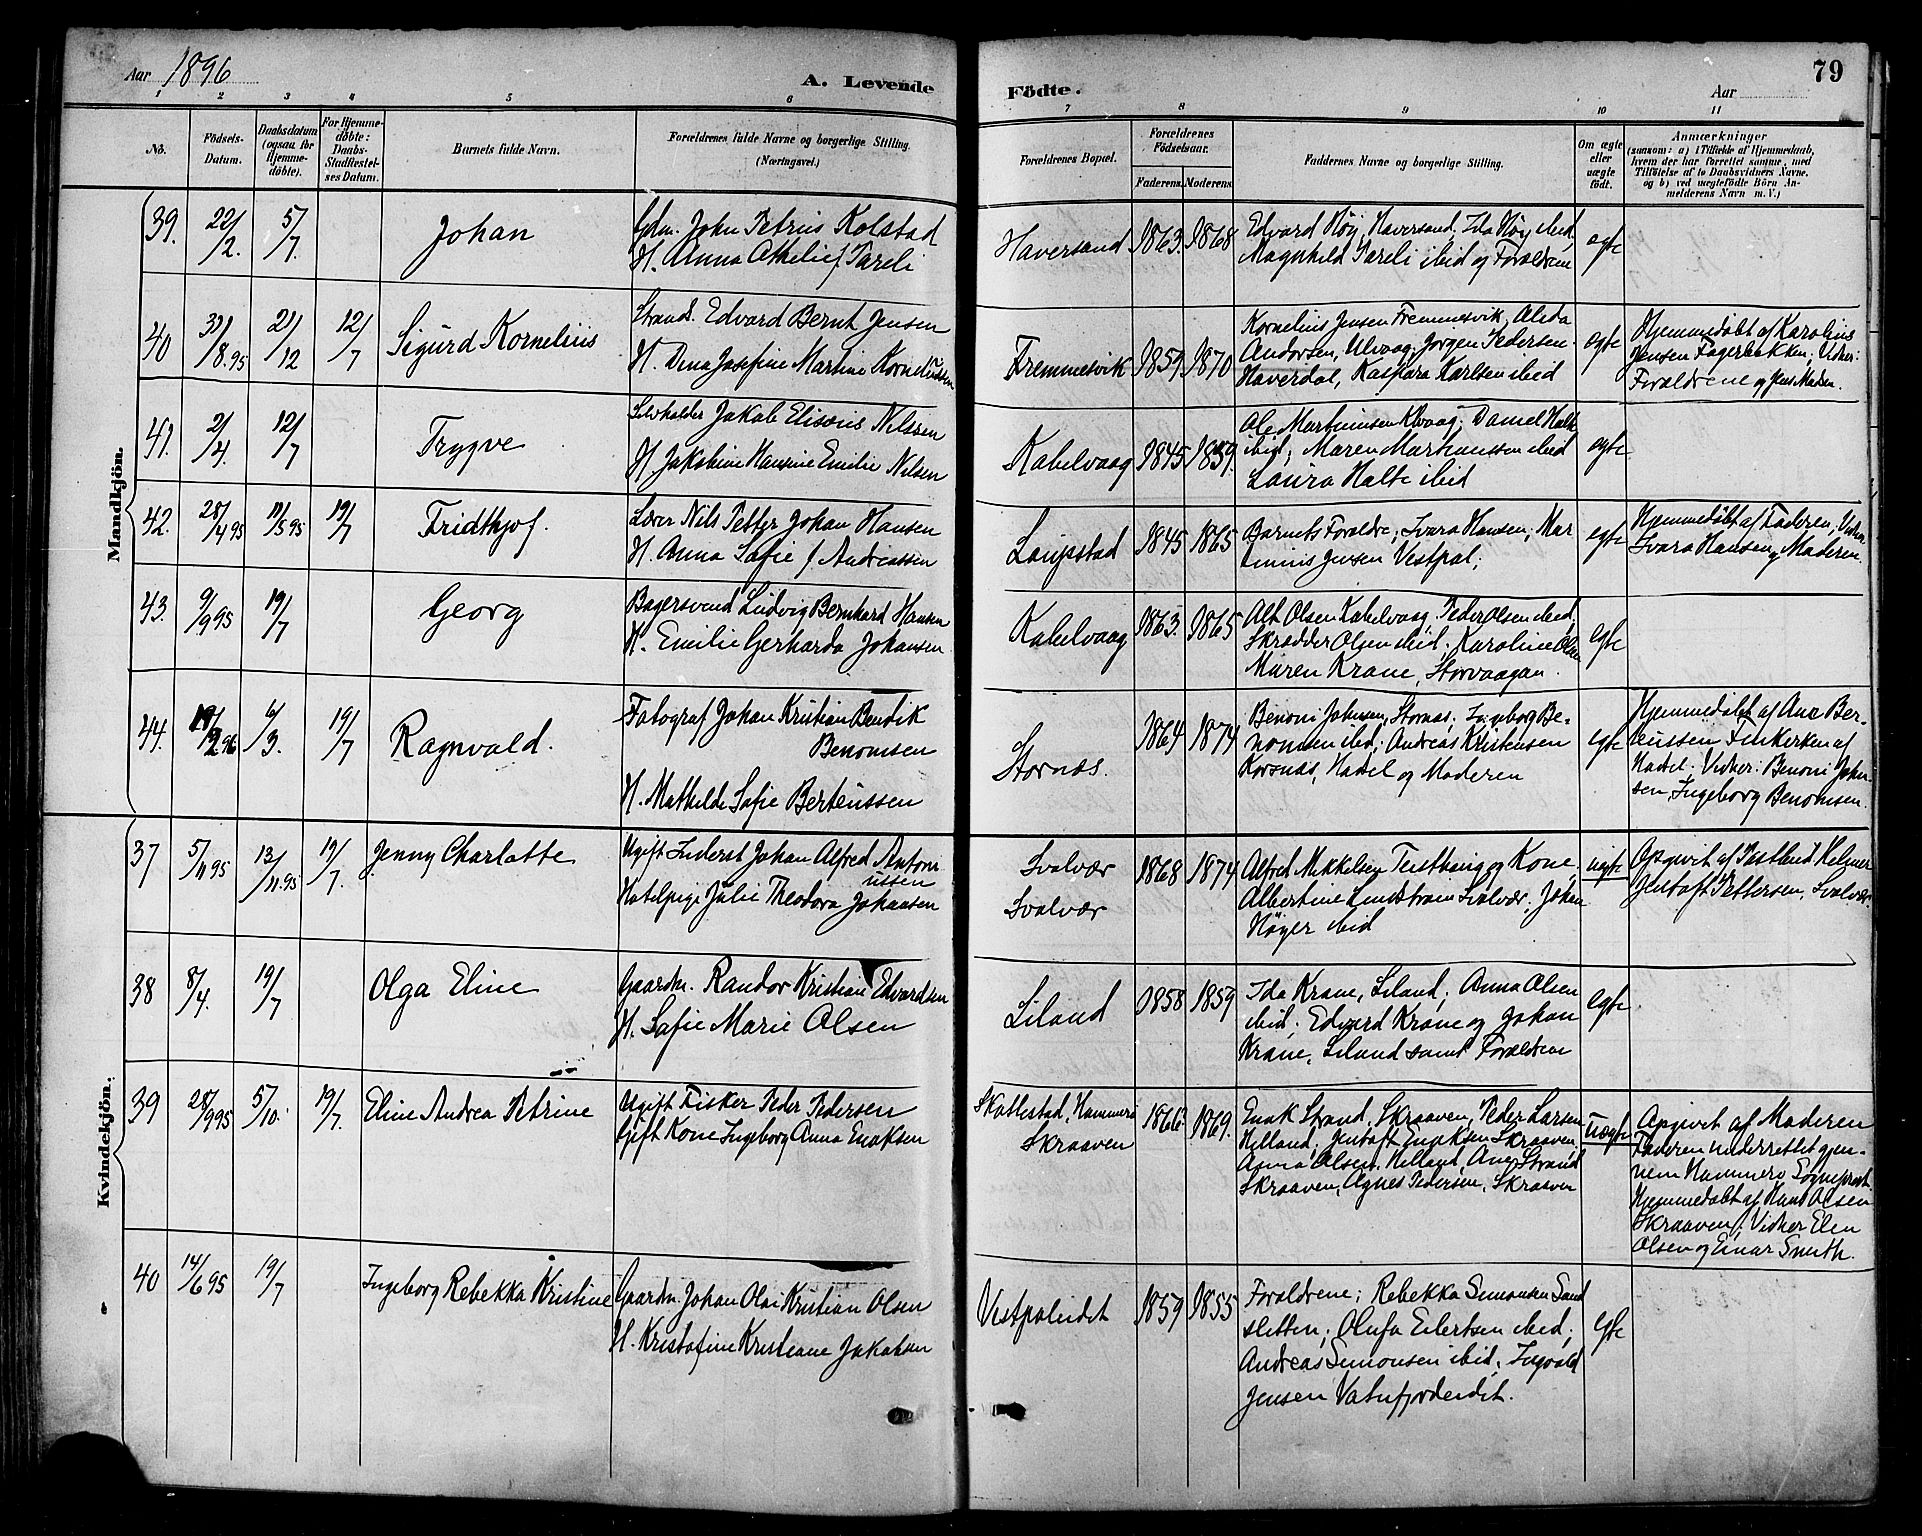 Aar 1896
A. Levende
Födte.
79
Aar
1 2 3 4 5 6 7 8 9 10 11
No.
Födsels-
Datum.
Daabsdatum
(ogsaa for
Hjemme-
døbte).
For Hjemme-
døbte:
Daabs-
Stadfæstel-
ses Datum.
Barnets fulde Navn.
Forældrenes fulde Navne og borgerlige Stilling.
(Næringsvei.)
Forældrenes Bopæl.
Forældrenes
Födselsaar.
Faderens. Moderens.
Faddernes Navne og borgerlige Stilling.
Om ægte
eller
uægte
født.
Anmærkninger
(saasom: a) i Tilfælde af Hjemmedaab,
hvem der har forrettet samme, med
Tilföielse af to Daabsvidners Navne,
og b) ved uægtefödte Börn An-
melderens Navn m. V.)
Mandkjön.
39. 22/2. 5/7. Johan
Gdm. John Petrius Kolstad
H. Anna Athelie f. Tareli
Haversand 1863. 1868
Edvard Høy, Haversand, Ida Høy ibid,
Magnhild Tareli ibid og Forældrene
egte
40 31/8.95 21/12 12/7 Sigurd Kornelius
Strands. Edvard Bernt Jensen
H. Dina Josefine Martine Korneliussen
Fremmesvik 1859 1870
Kornelius Jensen Fremmesvik, Alida
Andorsen, Ulvaag, Jørgen Pedersen
Haverdal, Kaspara Karlsen ibid
egte
Hjemmedøbt af Karolius
Jensen Fagerbakken; Vidner:
Forældrene og Jens Madsen.
41. 2/4. 12/7 Trygve
Selvholder Jakob Elisæus Nilssen
H. Jakobine Hansine Emilie Nilsen
Kabelvaag 1845 1859.
Ole Martinusen Kbvaag; Daniel Halte
ibid; Maren Martinussen ibid
Laura Halte ibid
egte
42. 28/4 95 11/5 95 19/7 Fridthjof.
Lærer Nils Petter Johan Hansen
H. Anna Sofie f. Andreassen
Laupstad 1845 1865
Barnets Forældre, Ivara Hansen, Mar
tinius Jensen Vestpol;
egte
Hjemmedøbt af Faderen; Vidner
Ivara Hansen og Moderen.
43. 9/9 95 19/7 Georg
Bagersvend Ludvig Bernhard Hansen
H. Emilie Gerharda Johansen
Kabelvaag 1863. 1865
Alt Olsen Kabelvaag, Peder Olsen ibid,
Skrædder Olsen ibid, Karoline Olsen
Maren Krane, Storvaagan.
egte
44. 19/2 96 6/3. 19/7 Ragnvald.
Fotograf Johan Kristian Bendik
Benonisen
H. Mathilde Sofie Berteussen
Stornæs. 1864 1874
Benoni Johnsen, Stornæs. Ingeborg Be-
nonisen ibid; Andreas Kristensen
Korsnæs, Hadsel og Moderen
egte
Hjemmedøbt af Ane Ber-
teussen Finkerken af
Hadsel. Vidner: Benoni John-
sen, Ingeborg Benonisen.
Kvindekjön.
37 5/11 95 13/11.95 19/7. Jenny Charlotte
Ugift Inderst Johan Alfred Antoni
ussen
Hotelpige Julie Theodora Johansen
Svolvær
Svolvær
1868 1874
Alfred Mikkelsen Teisthaug og Kone,
Albertine Lundstrøm Svolvær, Johan
Høyer ibid
uegte
Opgivet af Postbud Helmer
Jentoft Pettersen, Svolvær.
38 8/4. 19/7 Olga Eline
Gaardm. Randor Kristian Edvardsen
H. Sofie Marie Olsen
Liland 1858 1859
Ida Krane, Liland; Anna Olsen
ibid; Edvard Krane og Johan
Krane, Liland samt Forældrene
egte
39 28/9 95 5/10. 19/7. Eline Andrea Petrine
Ugift Fisker Peder Pedersen
Gift Kone Ingeborg Anna Enoksen
Skottestad, Hammerø
Skraaven
1866. 1869.
Enok Strand, Skraaven, Peder Larsen
Helland, Jentoft Enoksen Skraaven,
Asma Olsen, Helland, Ane Strand
Skraaven, Agnes Pedersen, Skraaven
Uegte
Opgivet af Moderen
Faderen underrettet gjen-
nem Hammerø Sogneprest
Hjemmedøbt af Hans Olsen
Skraaven; Vidner Elen
Olsen og Einar Smith.
40 14/6 95 19/7 Ingeborg Rebekka Kristine
Gaardm. Johan Olai Kristian Olsen
H. Kristofine Kristiane Jakobsen
Vestpoleidet 1859 1855
Forældrene; Rebekka Simonsen Sand
sletten; Olufa Eilertsen ibid;
Andreas Simonsen ibid. Ingvald
Jensen Vatnfjordeidet.
egte